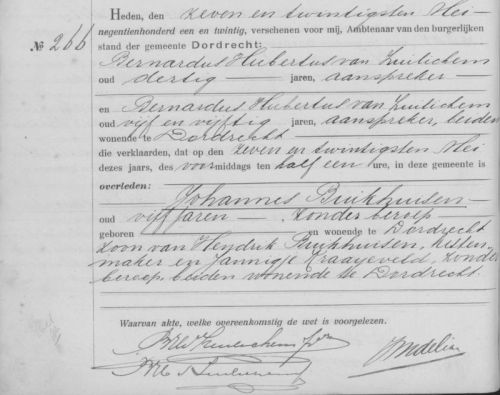 Heden, den zeven en twintigsten Mei
negentienhonderd een en twintig, verschenen voor mij, Ambtenaar van den burgerlijken
№ 266
stand der gemeente Dordrecht:
Bernardus Hubertus van Zuilichem
oud dertig jaren, aanspreker
en Bernardus Hubertus van Zuilichem
oud vijf en vijftig jaren, aanspreker, beiden
wonende te Dordrecht
die verklaarden, dat op den zeven en twintigsten Mei
dezes jaars, des voormiddags ten half een ure, in deze gemeente is
overleden:
Johannes Buikhuisen
oud vijf jaren zonder beroep
geboren en wonende te Dordrecht
zoon van Hendrik Buikhuisen, kisten-
maker en Jannigje Kraayeveld, zonder
beroep, beiden wonende te Dordrecht.
Waarvan akte, welke overeenkomstig de wet is voorgelezen.